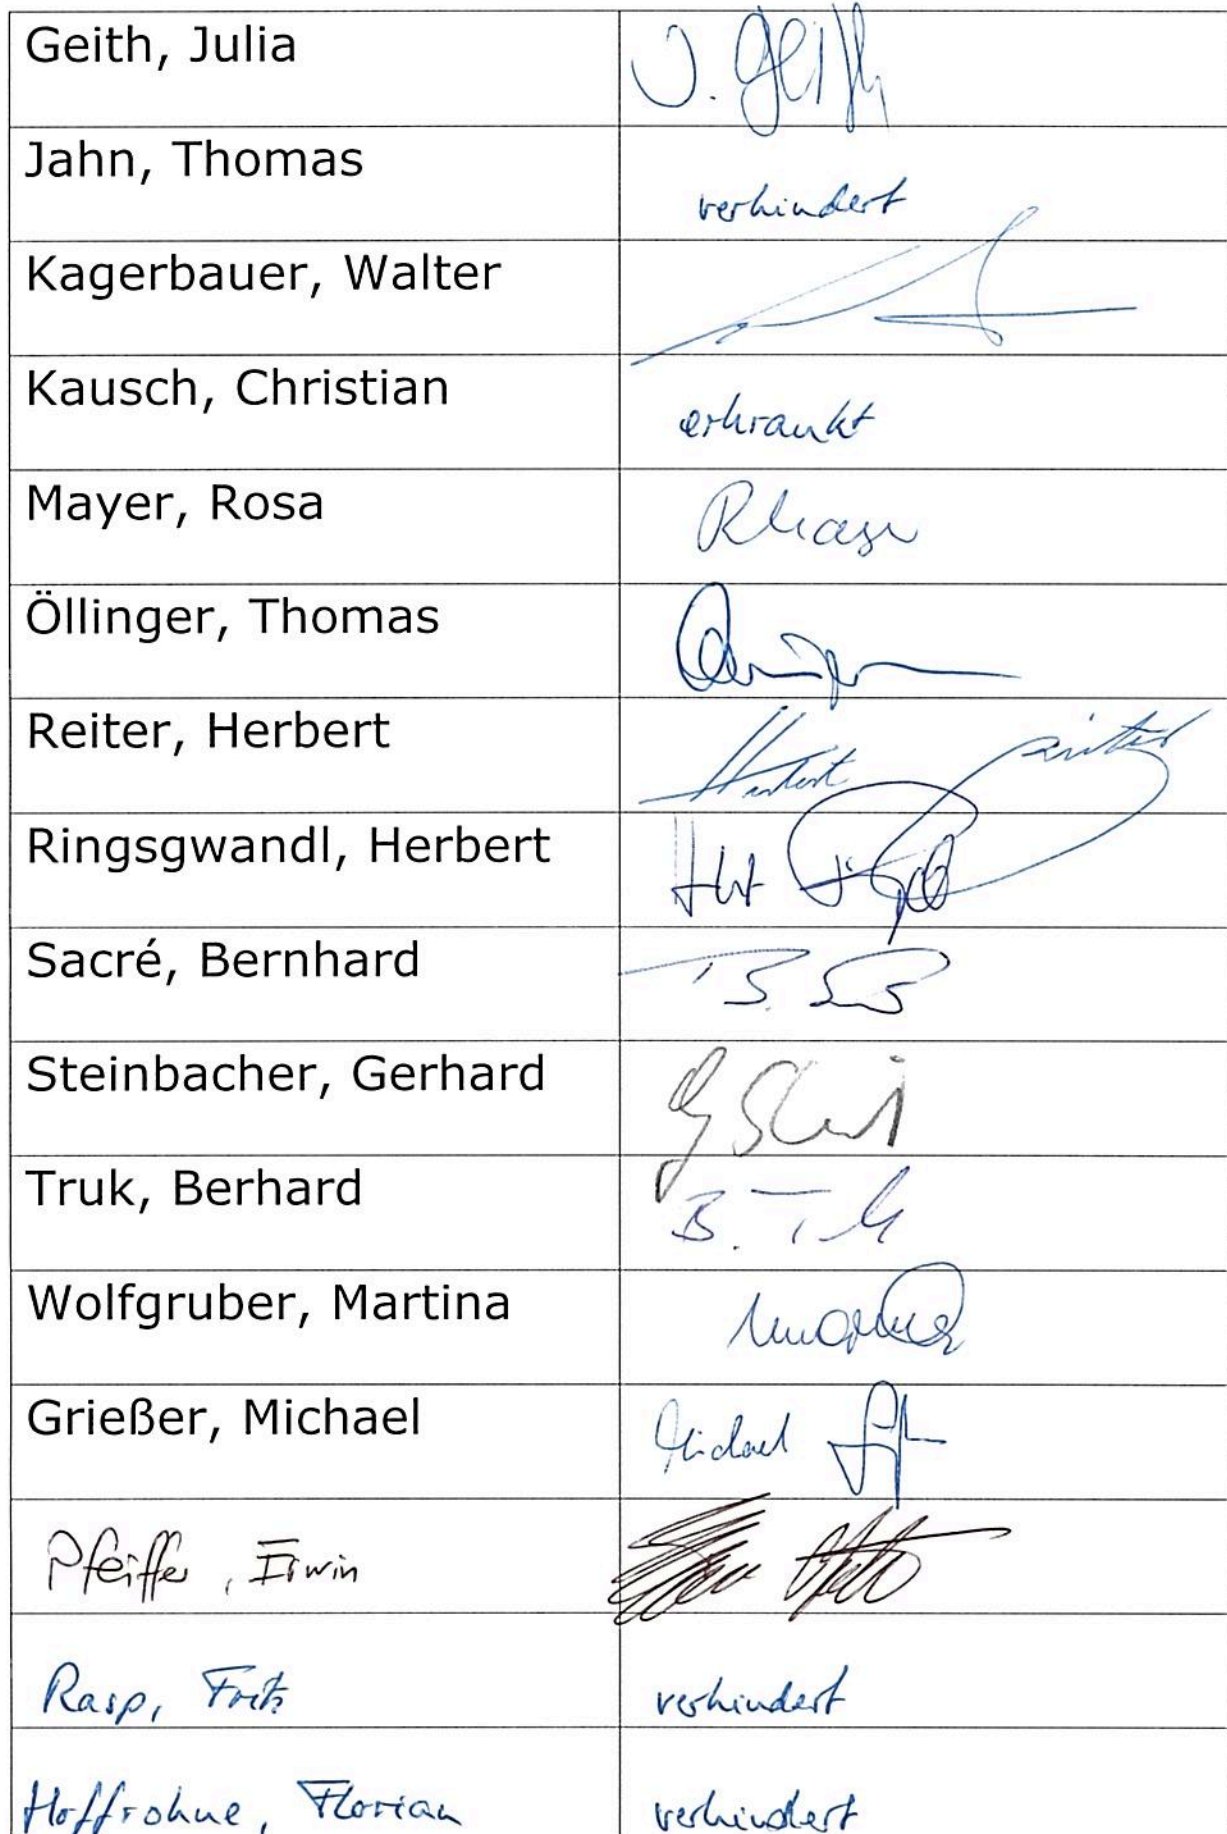 Geith, Julia J. Geith
Jahn, Thomas verhindert
Kagerbauer, Walter
Kausch, Christian erkrankt
Mayer, Rosa
Öllinger, Thomas
Reiter, Herbert Herbert Reiter
Ringsgwandl, Herbert
Sacré, Bernhard
Steinbacher, Gerhard
Truk, Berhard
Wolfgruber, Martina
Grießer, Michael Michael
Pfeiffer, Erwin
Rasp, Fritz verhindert
Hoffrohne, Florian verhindert